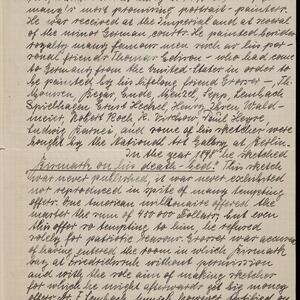 many's most prominent portrait-painters.
He was received at the Imperial and at several
of the minor German courts. He painted besides
royalty many famous men such as his per-
sonal friends Thomas Edison - who had come
to Germany from the United States in order to
be painted by his lifelong friend - Th.
Mommsen, Begas, Ende, Menzel, Sepp, Lenbach
Spielhagen Ernst Heckel, Henry Thren Wald-
meier, Robert Koch, R. Virchow Paul Heyse,
Ludwig and some of his sketches were
bought by the National Art Gallery at Berlin.
In the year 1898 he sketched
Bismarck on his death-bed! This sketch
was never published, it was never exhibited
nor reproduced in spite of many tempting
offers. One American millionaire offered the
master the sum of 400000 Dollars, but even
this offer so tempting to him, he refused
solely for patriotic reasons. was accused
of having entered the room in which Bismarck
lay at Friedrichsruh without permission
and with the sole aim of making sketches
for which he might afterwards get big money